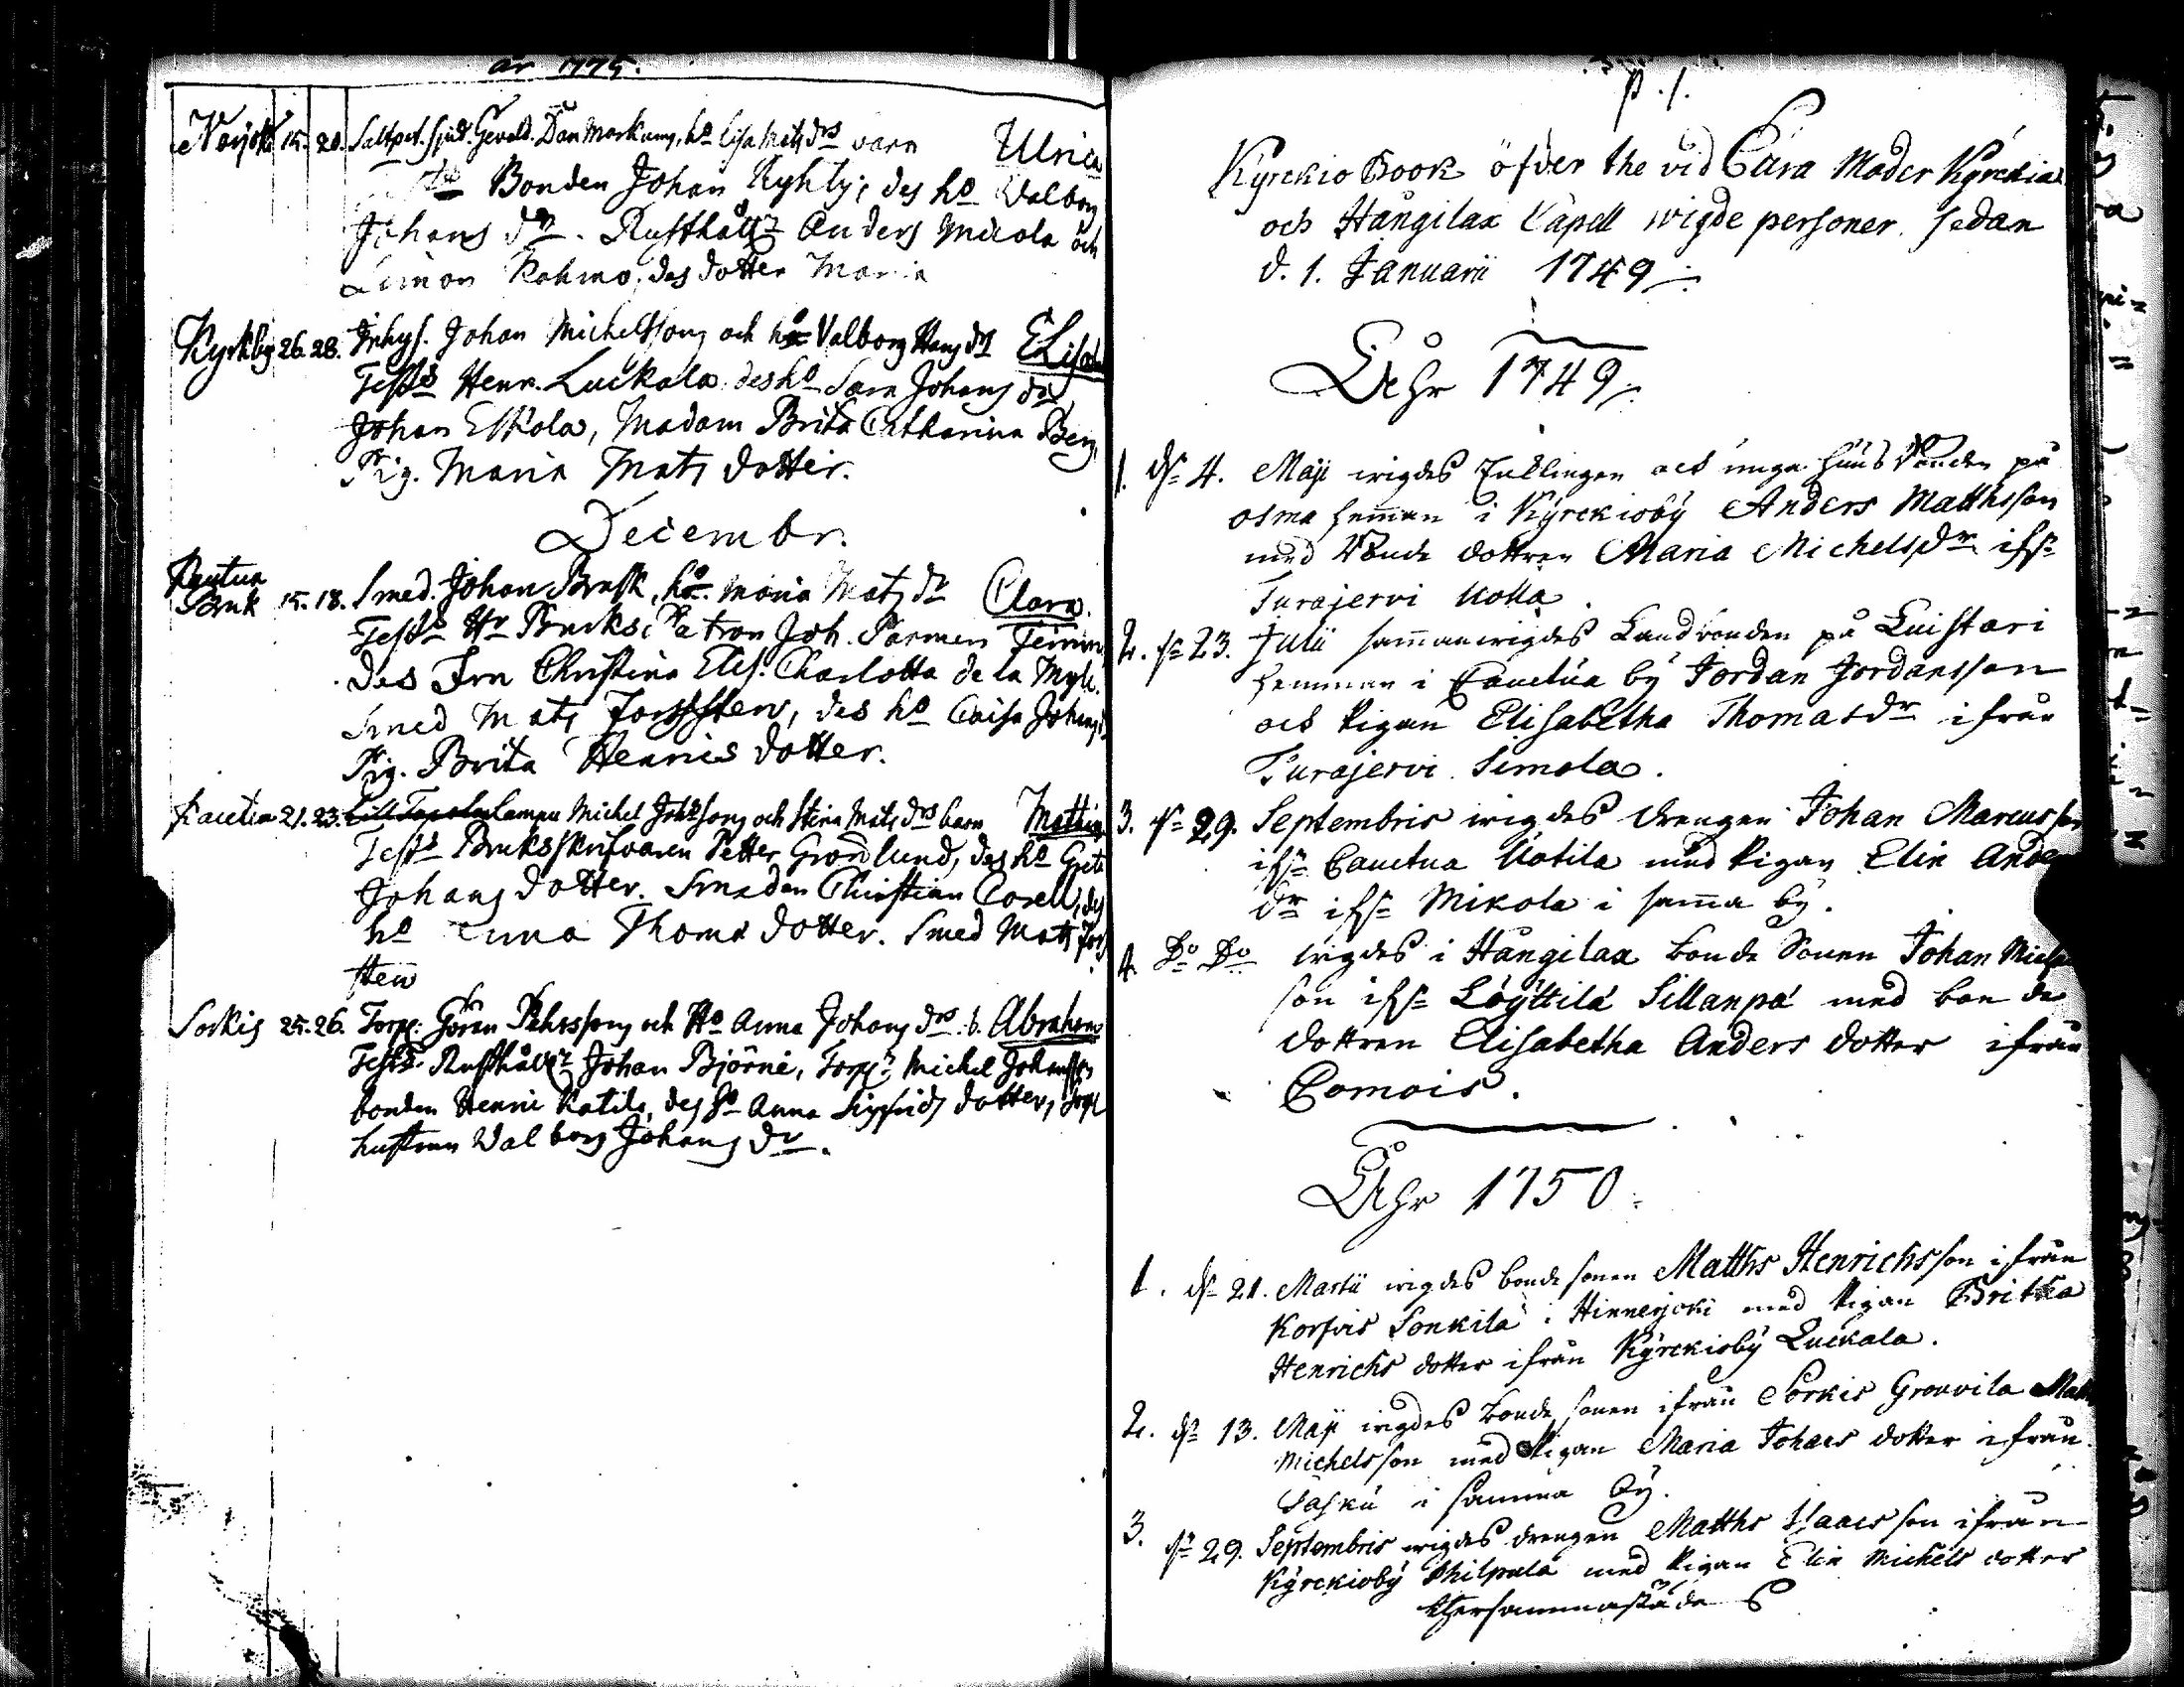 år 1775.
15. 20. Saltpet. sjud. Gevald. Dan Markum, ho Lisa Mats drs barn Ulrica
Bonden Johan Kyhty, des ho Walborg
Johans dr. Rusthåll Anders Mickola och
Simon Rahmo, des dotter Maria
Kyrkby 26. 28. Inhys. Johan Michelssons och ho Valborg Hans drs Elisab
Test Henr. Luckala des ho Sara Johans dr
Johan Eskola, Madam Brita Catharina Berg,
Pig. Maria Mats dotter.
Decembr.
Kautua
Bruk 15. 18. Smed. Johan Brusk, ho. Maria Mats dr Clara.
Test Hr Bruks Patron Joh. Salmen
des Fru Christina Elis. Charlotta de la Myle.
Smed Mats Forssten, des ho Caisa Johans
Pig. Brita Henrics dotter.
Kautua 21. 23. Lampu Michel Johssons och Stina Mats drs barn Mathias
Test Bruksskrifvaren Petter Grönlund, des ho Greta
Johans dotter. Smeden Christian Corell, des
ho Anna Thomæ dotter. Smed Mats Fors
sten
Sorkis 25. 26. Torp. Göran Pehrssons och Ho Anna Johans drs. b. Abraham
Test. Rusthåll Johan Björni, Torp Michel Johansson
bonden Henric Katila, des ho Anna Sigfrids dotter, Torp
hustrun Walborg Johans dr.
p. 1.
Kyrckio Book öfver the vid Eura Moder Kyrckia
och Hångilax Capell wigde personer sedan
d. 1. Januarii 1749
Åhr 1749
1. d. 4. Maji wigdes Enklingen och unga husbonden på
osma hemman i Kyrckioby Anders Matthsson
med Bonde dottren Maria Michelsdr ifr
Turajervi Uotila
2. d. 23. Julii sammanwigdes Landbonden på Luistari
hemman i Cauctua by Jordan Jordansson
och Pigan Elisabetha Thomasdr ifrån
Turajervi Simola.
3. d. 29. Septembris wigdes drengen Johan Marcusson
ifr Cauctua Uotila med Pigan Elin Anders
dr ifr Mikola i samma by.
4. Do Do wigdes i Hångilax bonde Sonen Johan Michels
son ifr Löyttilä Sillanpä med bonde
dottren Elisabetha Anders dotter ifrån
Comois.
Åhr 1750.
1. d. 21. Martii wigdes bonde sonen Matths Henrichsson ifrån
Korfvis Sonkila i Hinnerjoki med Pigan Britha
Henrichs dotter ifrån Kyrckioby Luckala.
2. d. 13. Maji wigdes bonde sonen ifrån Sorkis Grouvila Matts
Michelsson med Pigan Maria Johans dotter ifrån
Sasku i samma by.
3. d. 29. Septembris wigdes drengen Matths Isaacsson ifrån
Kyrckioby Philpula med Pigan Elin Michels dotter
thersammastädes